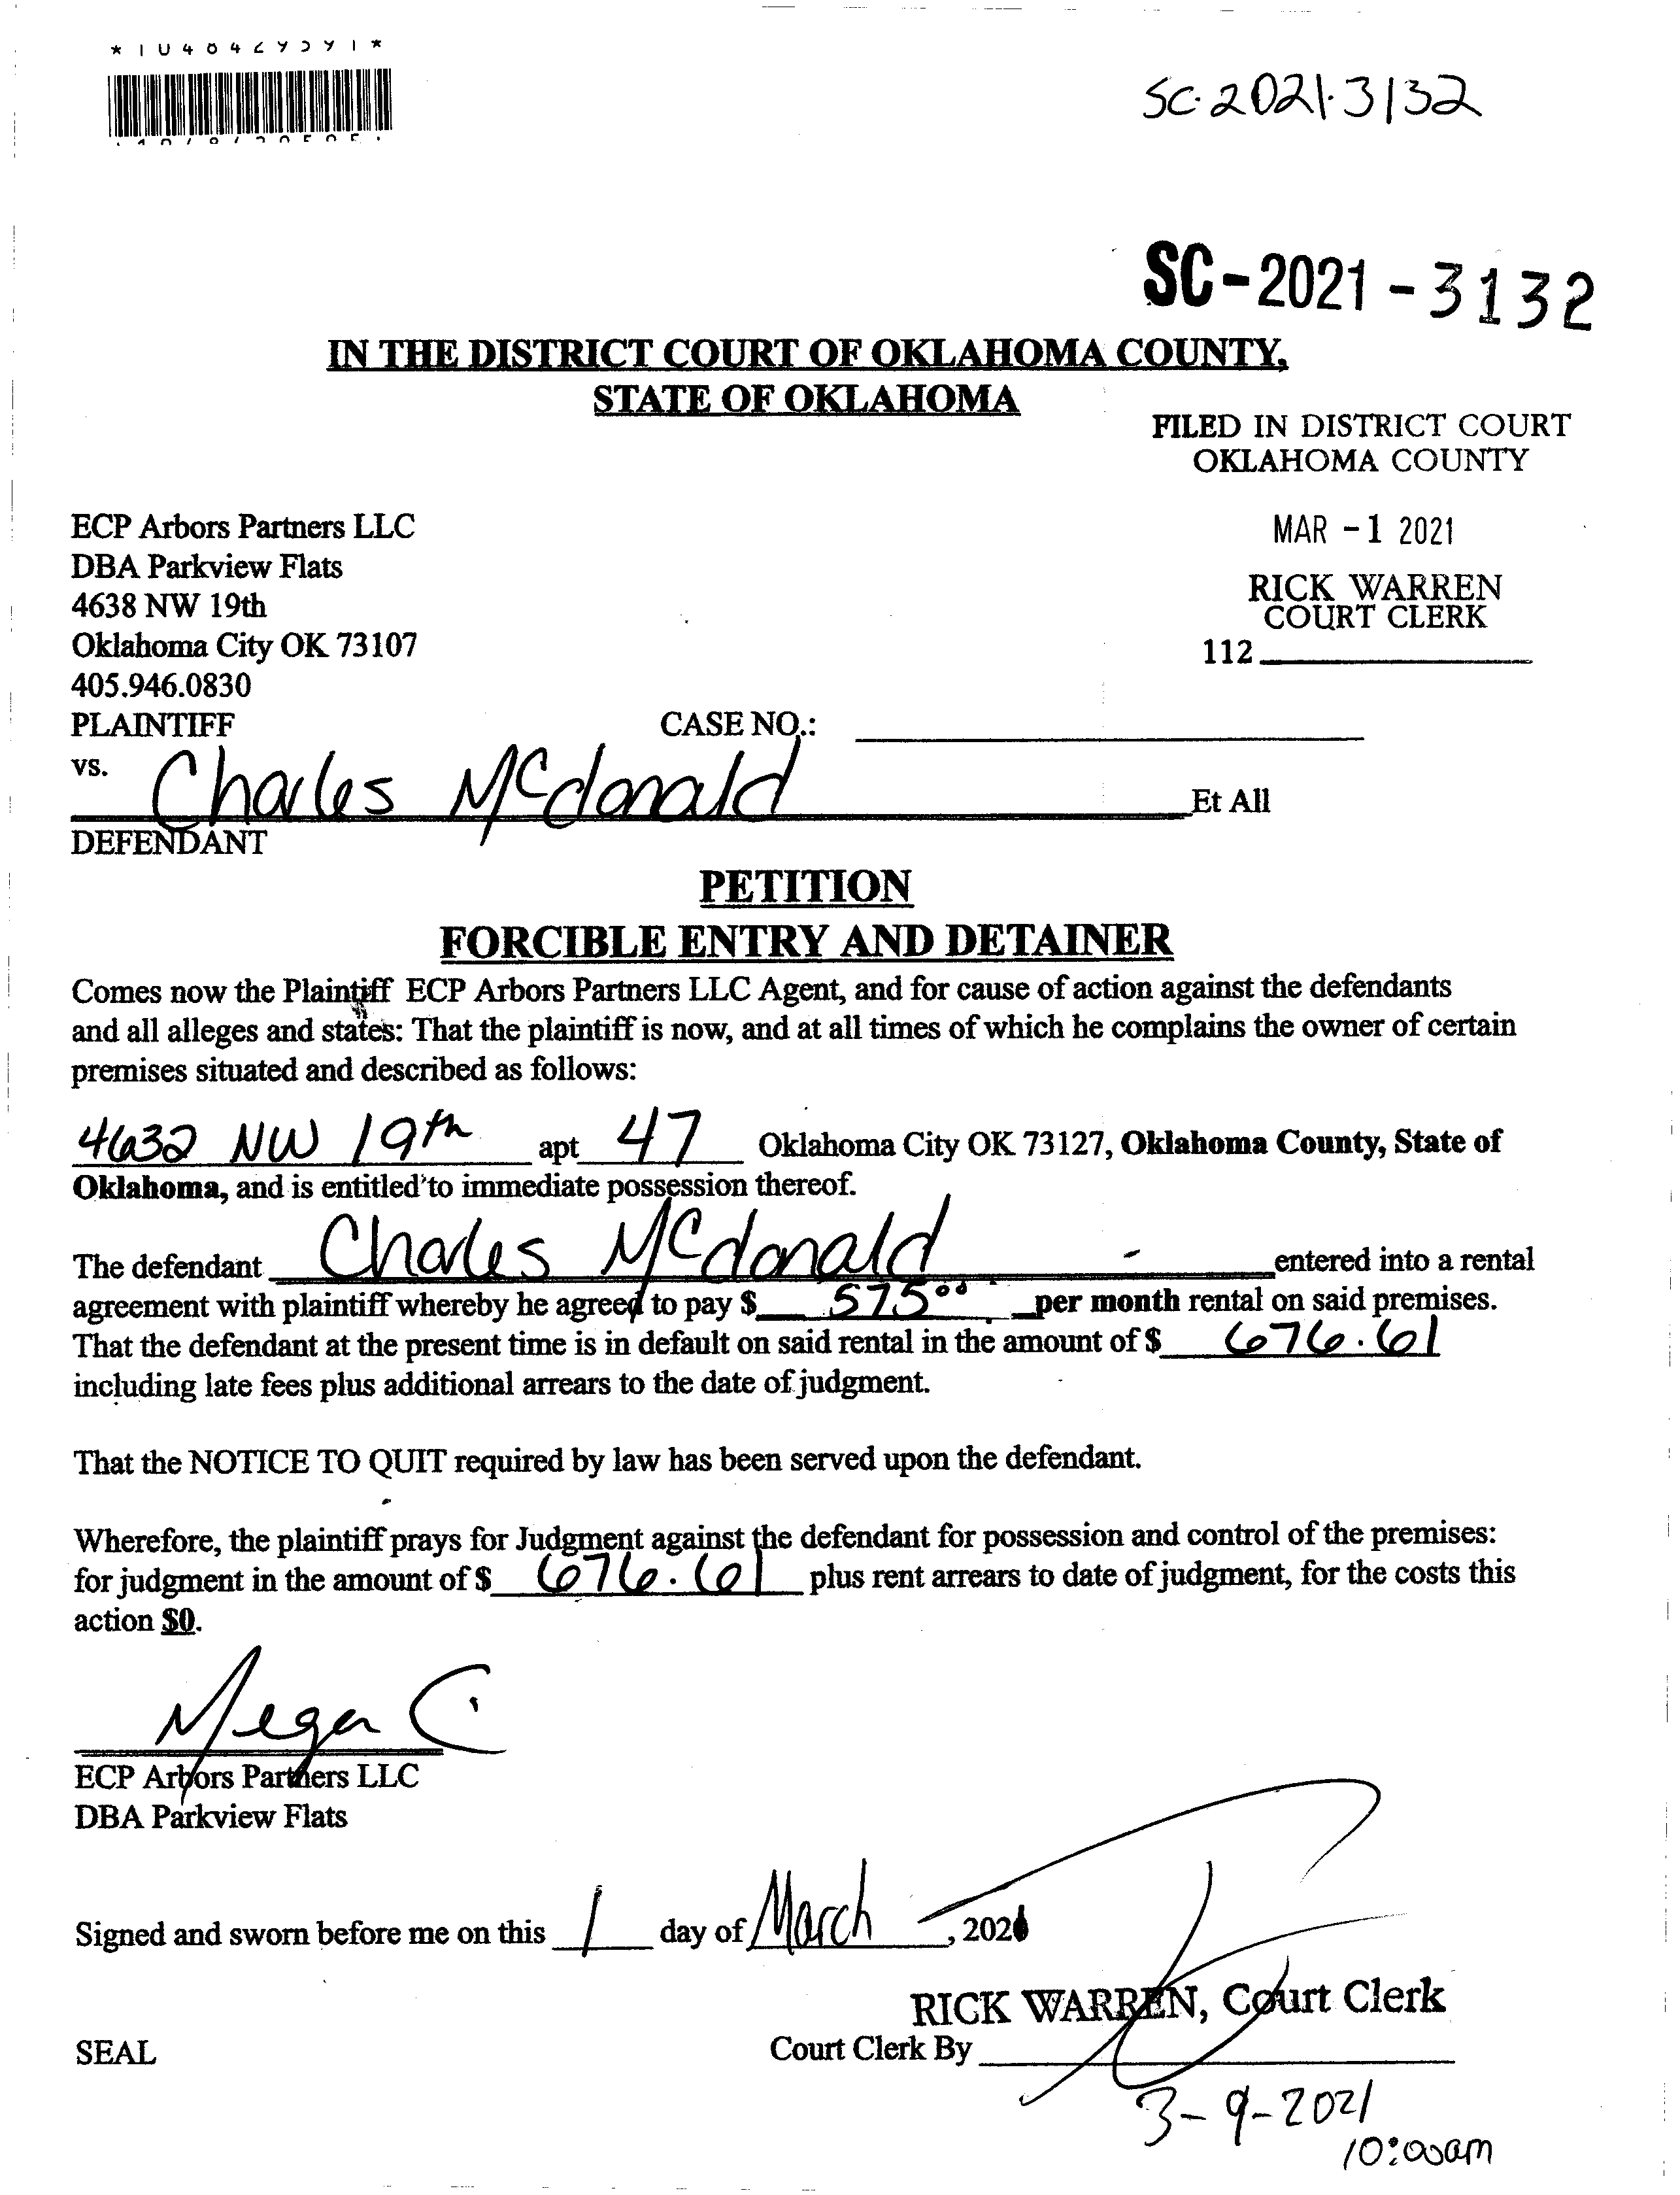 SC-2021-3132
SC-2021-3132
IN THE DISTRICT COURT OF OKLAHOMA COUNTY,
STATE OF OKLAHOMA
FILED IN DISTRICT COURT
OKLAHOMA COUNTY
MAR -1 2021
RICK WARREN
COURT CLERK
112
ECP Arbors Partners LLC
DBA Parkview Flats
4638 NW 19th
Oklahoma City OK 73107
405.946.0830
PLAINTIFF CASE NO.:
vs. Charles McDonald Et All
DEFENDANT
PETITION
FORCIBLE ENTRY AND DETAINER
Comes now the Plaintiff ECP Arbors Partners LLC Agent, and for cause of action against the defendants
and all alleges and states: That the plaintiff is now, and at all times of which he complains the owner of certain
premises situated and described as follows:
4632 NW 19th apt 47 Oklahoma City OK 73127, Oklahoma County, State of
Oklahoma, and is entitled to immediate possession thereof.
The defendant Charles McDonald entered into a rental
agreement with plaintiff whereby he agreed to pay $ 575.00 per month rental on said premises.
That the defendant at the present time is in default on said rental in the amount of $ 676.61
including late fees plus additional arrears to the date of judgment.
That the NOTICE TO QUIT required by law has been served upon the defendant.
Wherefore, the plaintiff prays for Judgment against the defendant for possession and control of the premises:
for judgment in the amount of $ 676.61 plus rent arrears to date of judgment, for the costs this
action $0.
Megan C
ECP Arbors Partners LLC
DBA Parkview Flats
Signed and sworn before me on this 1 day of March, 2021
RICK WARREN, Court Clerk
SEAL Court Clerk By
3-9-2021
10:00am